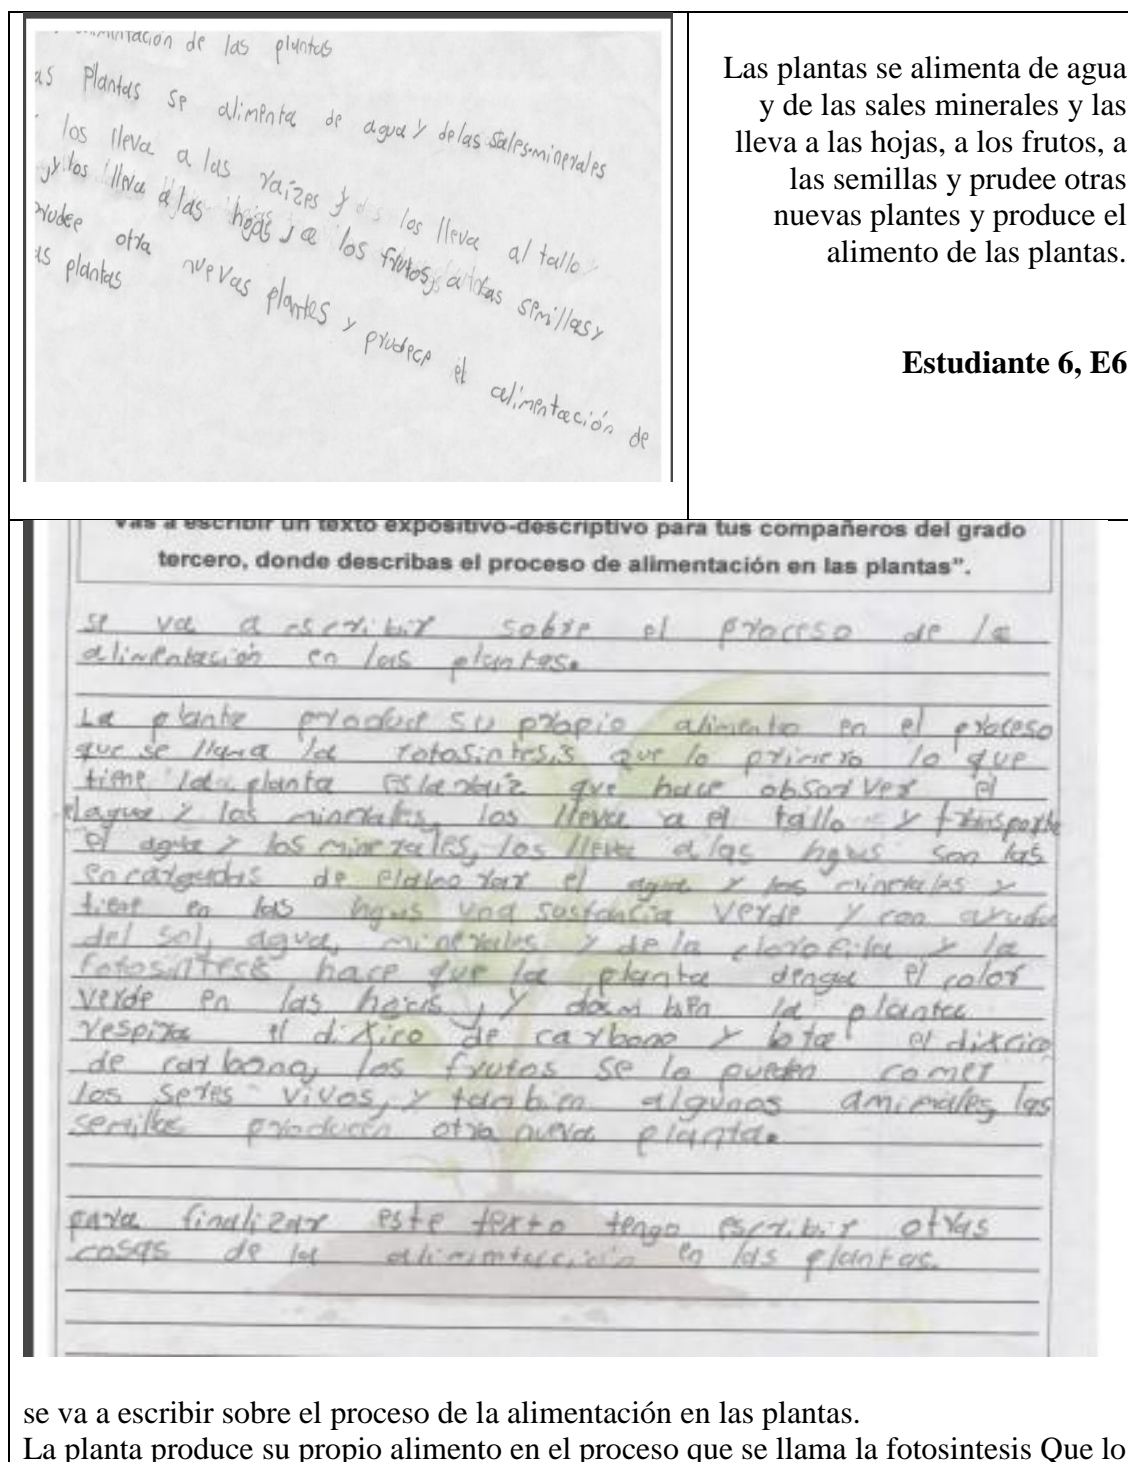 alimentación de las pluntas
as Plantas se alimenta de agua y de las sales minerales
los lleva a las raízes y los lleva al tallo
y los lleva a las hojas, a los frutos, a las semillas y
prudee otra nuevas plantes y prudece el alimentación de
as plantas
Las plantas se alimenta de agua
y de las sales minerales y las
lleva a las hojas, a los frutos, a
las semillas y prudee otras
nuevas plantes y produce el
alimento de las plantas.
Estudiante 6, E6
vas a escribir un texto expositivo-descriptivo para tus compañeros del grado
tercero, donde describas el proceso de alimentación en las plantas”.
se va a escribir sobre el proceso de la
alimentación en las plantas.
La planta produce su propio alimento en el proceso
que se llama la fotosintesis que lo primero lo que
tiene la planta es la raiz que hace obsorver el
elagua y los minerales, los lleva a el tallo y transporta
el agua y los minerales, los lleva a las hojas son las
encargadas de elaborar el agua y los minerales y
tiene en las hojas una sustancia verde y con ayuda
del sol, agua, minerales y de la clorofila y la
fotosintesis hace que la planta denga el color
verde en las hojas, y dambien la planta
respira el dixico de carbono y bota el dixcico
de carbono, los frutos se lo pueden comer
los seres vivos, y tambien algunos amimales, las
semillas producen otra nueva planta.
para finalizar este texto tengo escribir otras
cosas de la en las plantas.
se va a escribir sobre el proceso de la alimentación en las plantas.
La planta produce su propio alimento en el proceso que se llama la fotosintesis Que lo